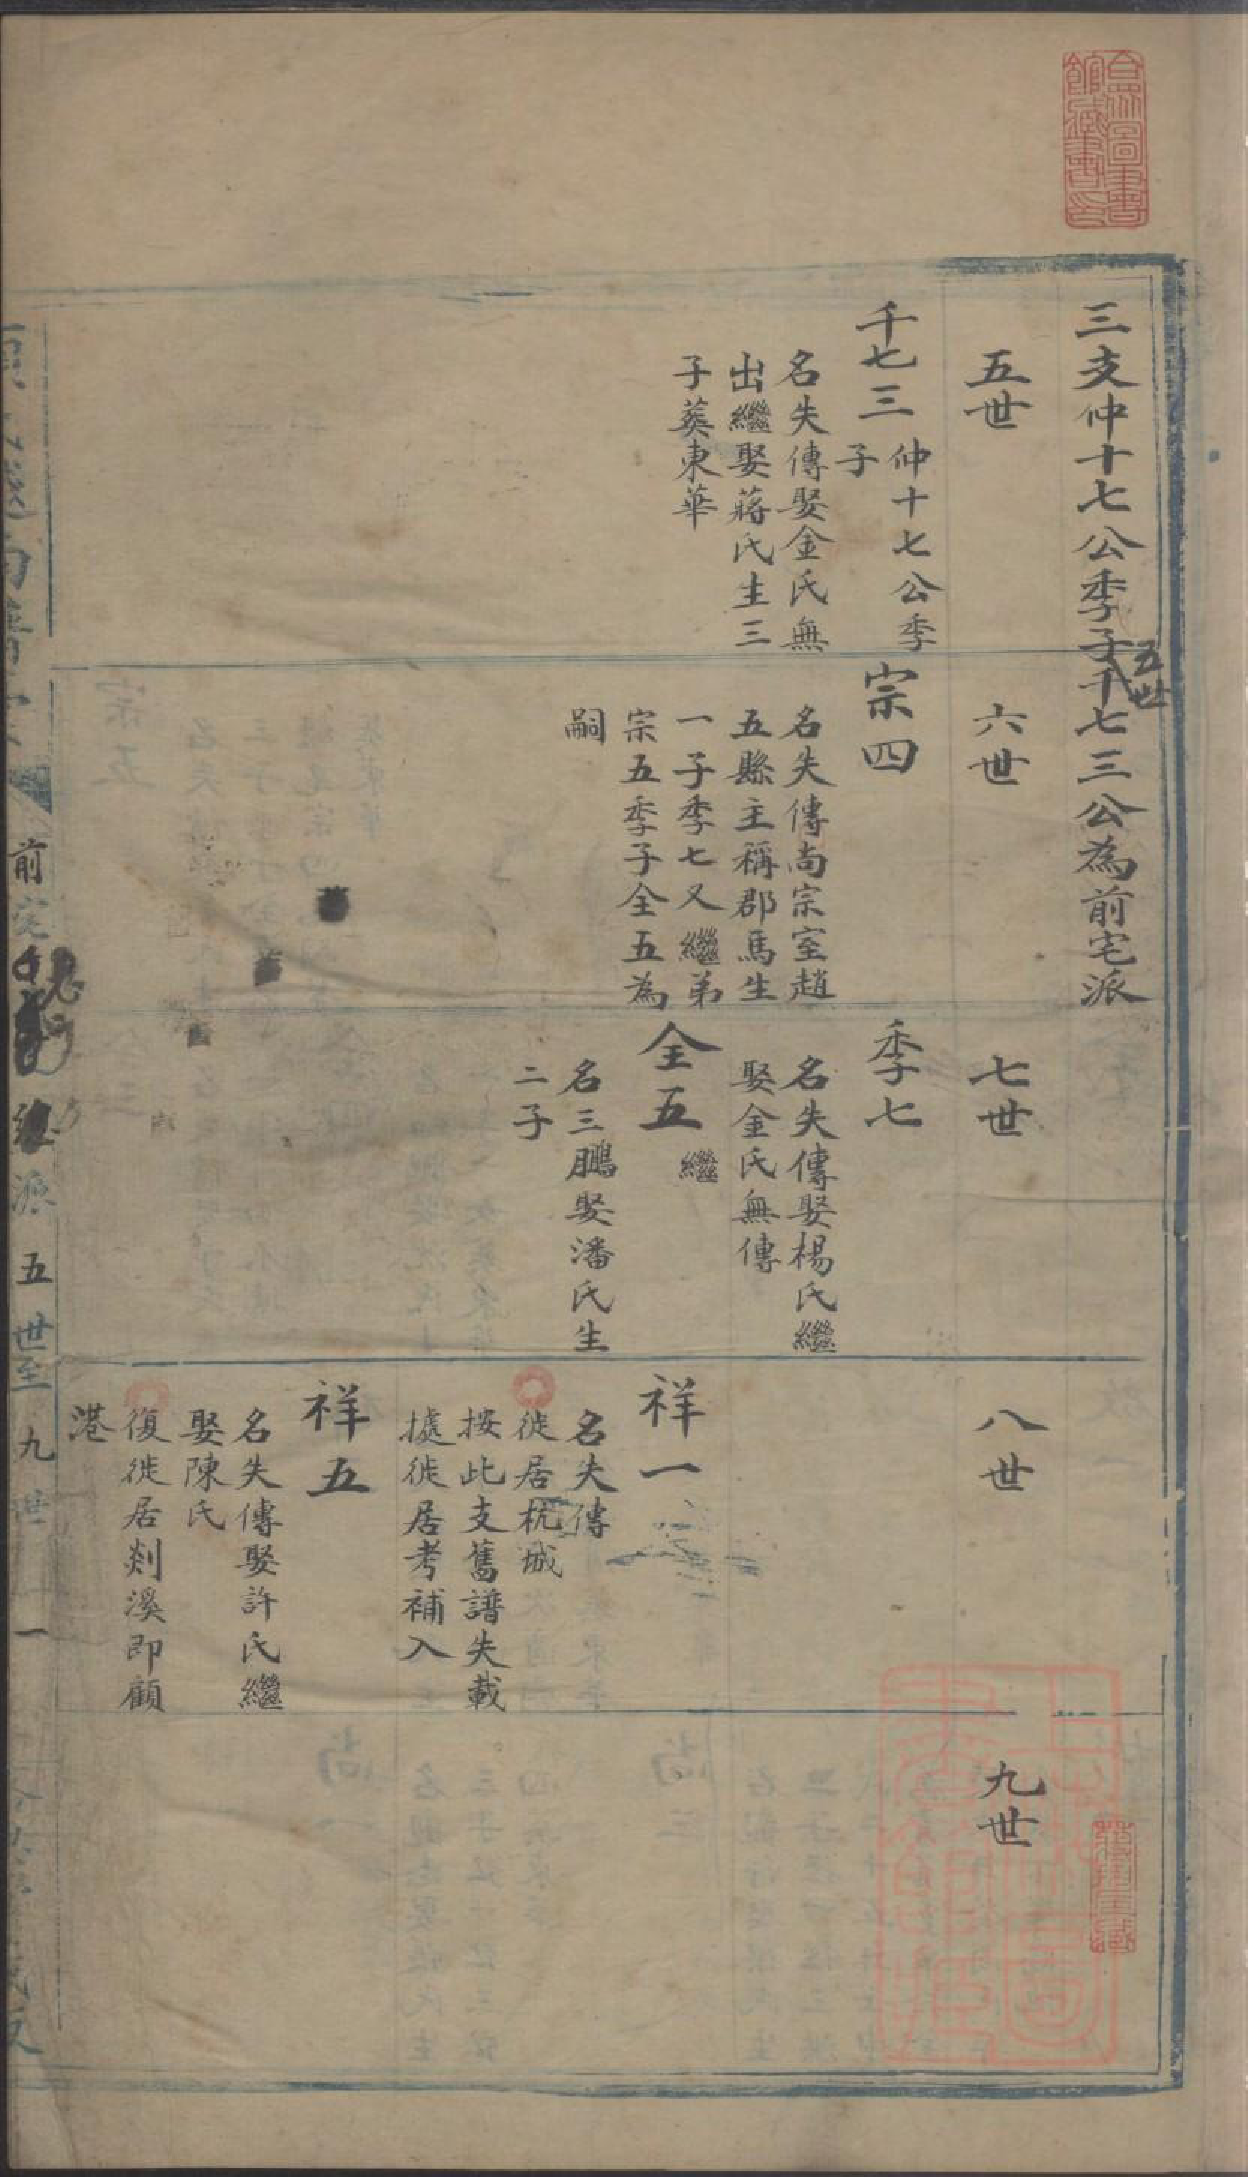 三支仲十七公季子五世千七三公為前宅派
五世
千七三
仲十七公季
子
名失傳娶金氏無
出繼娶蔣氏生三
子葬東華
六世
宗四
名失傳尚宗室趙
五縣主稱郡馬生
一子季七又繼弟
宗五季子全五為
嗣
七世
季七
名失傳娶楊氏繼
娶金氏無傳
全五 繼
名三鵬娶潘氏生
二子
八世
祥一
名失傳
徙居杭城
按此支舊譜失載
據徙居考補入
祥五
名失傳娶許氏繼
娶陳氏
復徙居剡溪即顧
港
九世
前宅
總派
五世至九世
一